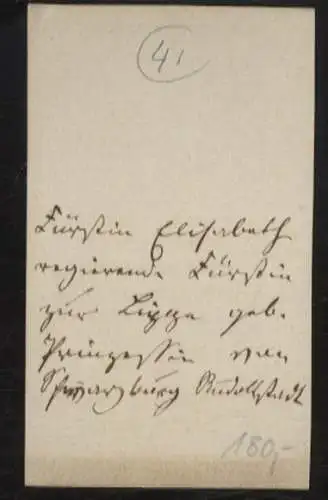 41
Fürstin Elisabeth
regierende Fürstin
zur Lippe geb.
Prinzessin von
Schwarzburg Rudolstadt
180,-